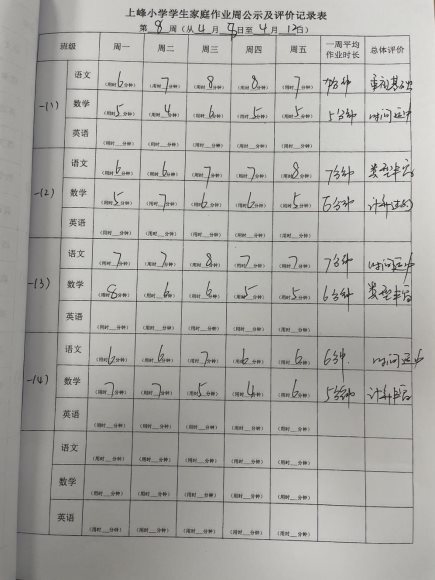 上峰小学学生家庭作业周公示及评价记录表
第 8 周（从 4 月 8 日至 4 月 12 日）
班级 周一 周二 周三 周四 周五 一周平均作业时长 总体评价
一(1) 语文 （用时6分钟） （用时7分钟） （用时8分钟） （用时8分钟） （用时7分钟） 7分钟 重视基础
数学 （用时5分钟） （用时4分钟） （用时6分钟） （用时5分钟） （用时5分钟） 5分钟 时间适中
英语 （用时__分钟） （用时__分钟） （用时__分钟） （用时__分钟） （用时__分钟）
一(2) 语文 （用时6分钟） （用时6分钟） （用时7分钟） （用时7分钟） （用时8分钟） 7分钟 类型丰富
数学 （用时5分钟） （用时7分钟） （用时6分钟） （用时6分钟） （用时5分钟） 6分钟
英语 （用时__分钟） （用时__分钟） （用时__分钟） （用时__分钟） （用时__分钟）
一(3) 语文 （用时7分钟） （用时7分钟） （用时8分钟） （用时7分钟） （用时7分钟） 7分钟 时间适中
数学 （用时8分钟） （用时6分钟） （用时6分钟） （用时5分钟） （用时5分钟） 6分钟 类型丰富
英语 （用时__分钟） （用时__分钟） （用时__分钟） （用时__分钟） （用时__分钟）
一(4) 语文 （用时6分钟） （用时6分钟） （用时7分钟） （用时6分钟） （用时6分钟） 6分钟 时间适中
数学 （用时7分钟） （用时7分钟） （用时5分钟） （用时4分钟） （用时6分钟） 5分钟
英语 （用时__分钟） （用时__分钟） （用时__分钟） （用时__分钟） （用时__分钟）
语文 （用时__分钟） （用时__分钟） （用时__分钟） （用时__分钟） （用时__分钟）
数学 （用时__分钟） （用时__分钟） （用时__分钟） （用时__分钟） （用时__分钟）
英语 （用时__分钟） （用时__分钟） （用时__分钟） （用时__分钟） （用时__分钟）